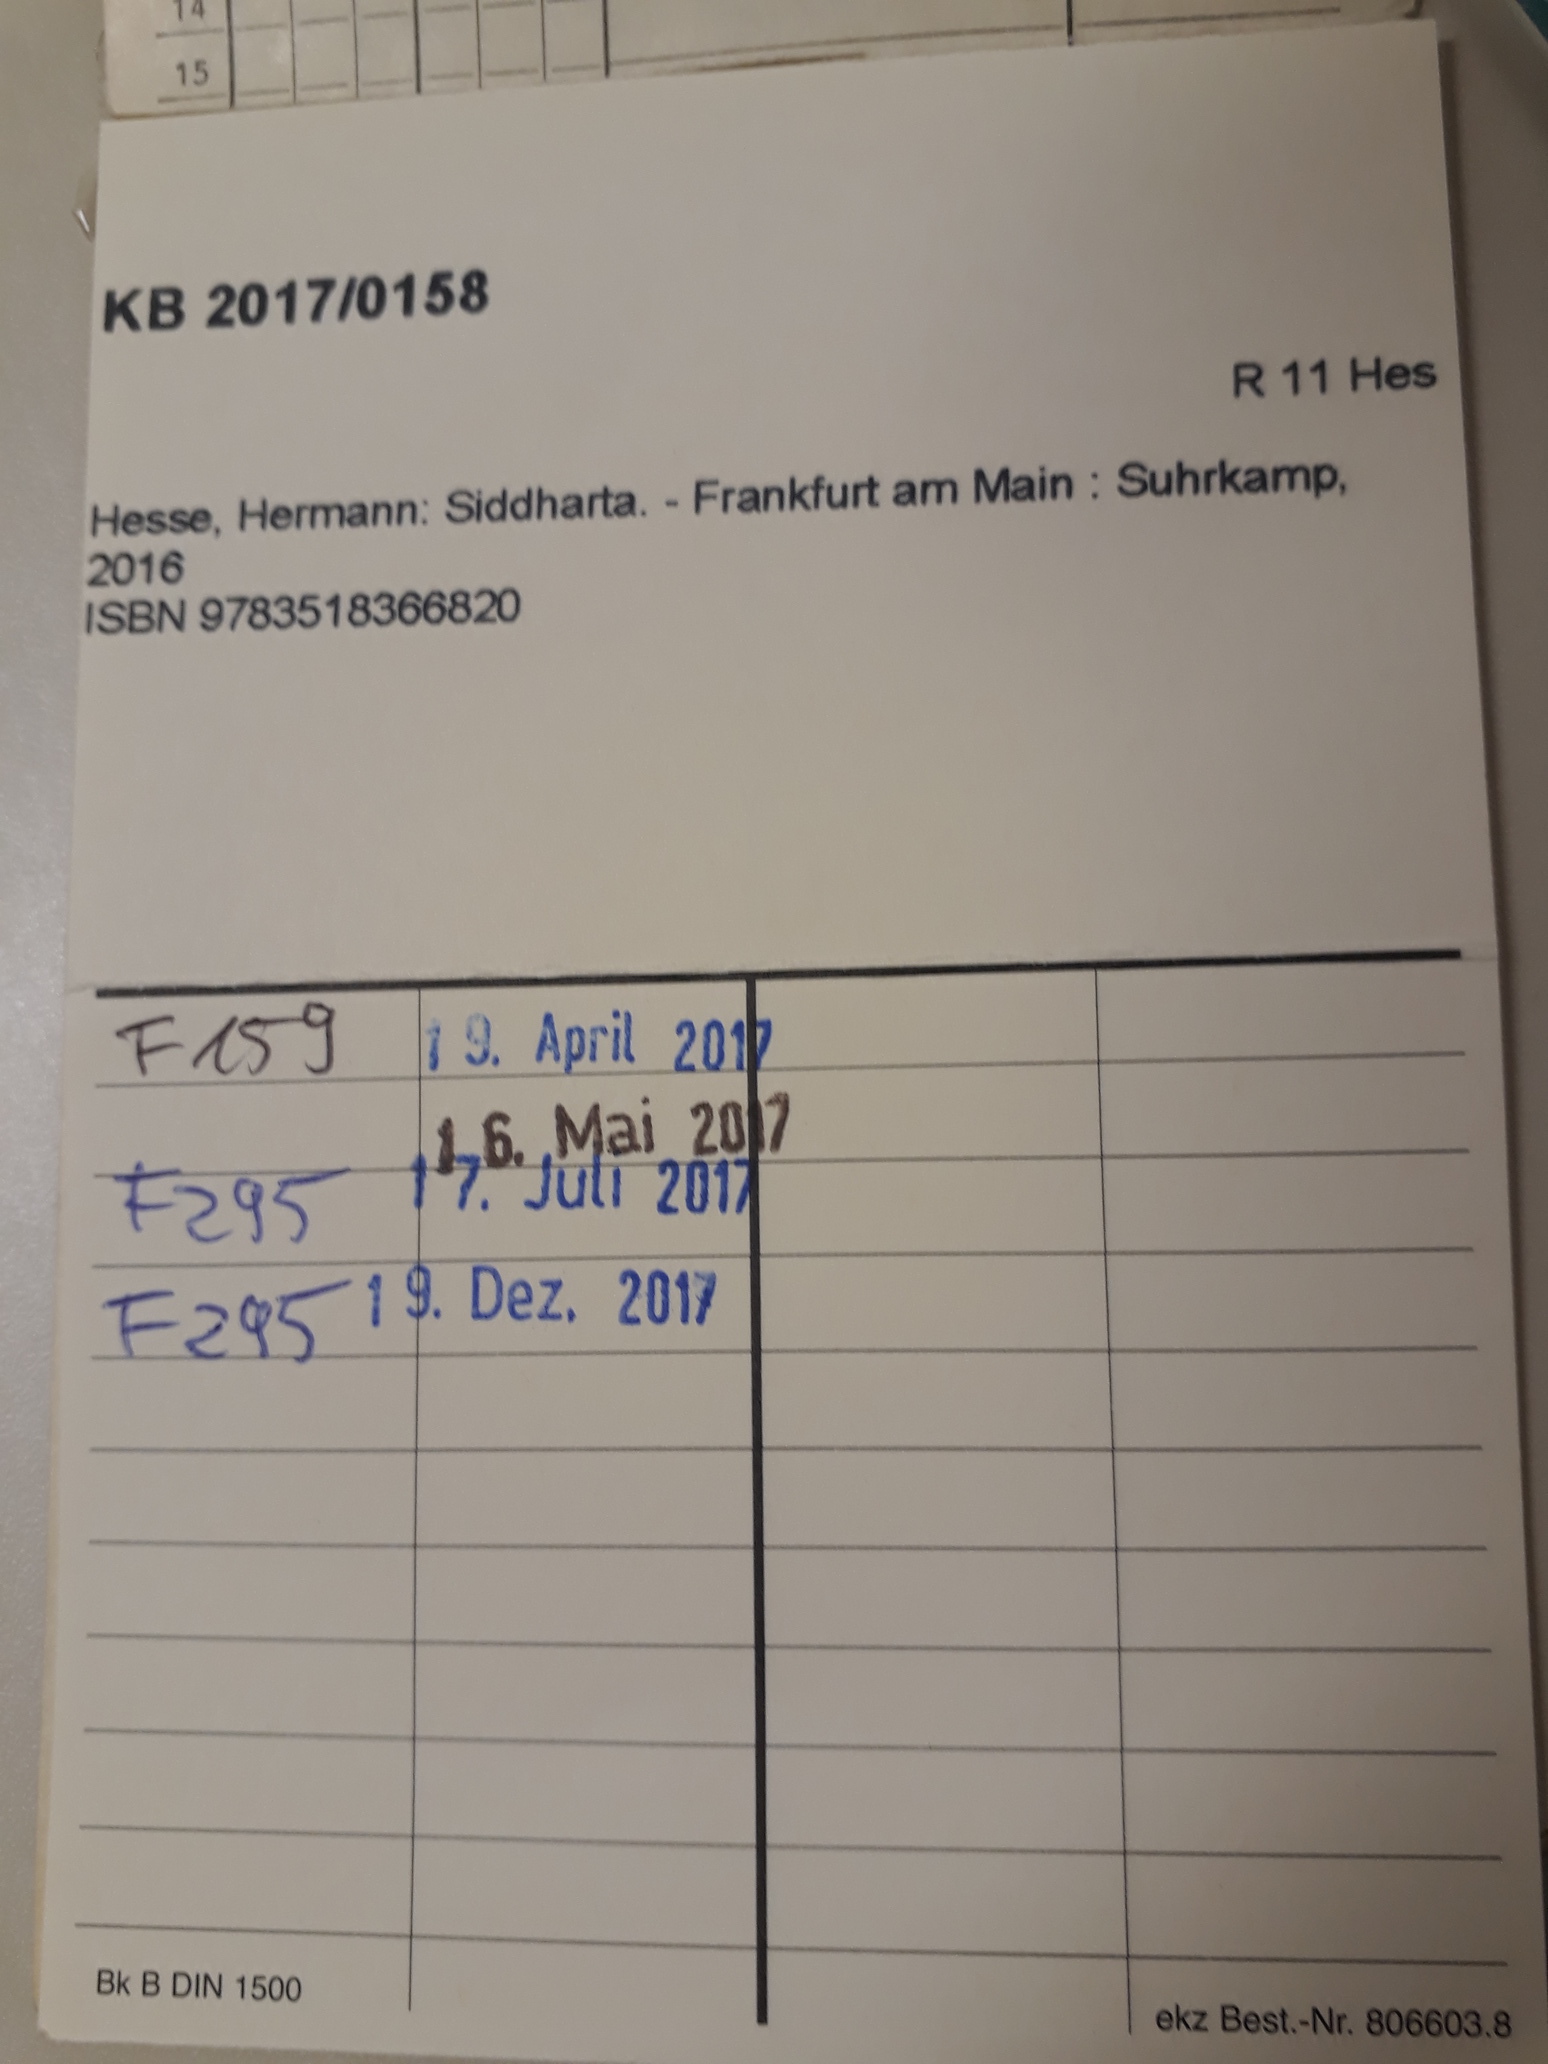 14
15
KB 2017/0158
R 11 Hes
Hesse, Hermann: Siddharta. - Frankfurt am Main : Suhrkamp,
2016
ISBN 9783518366820
F159 19. April 2017
16. Mai 2017
F295 17. Juli 2017
F295 19. Dez. 2017
Bk B DIN 1500
ekz Best.-Nr. 806603.8